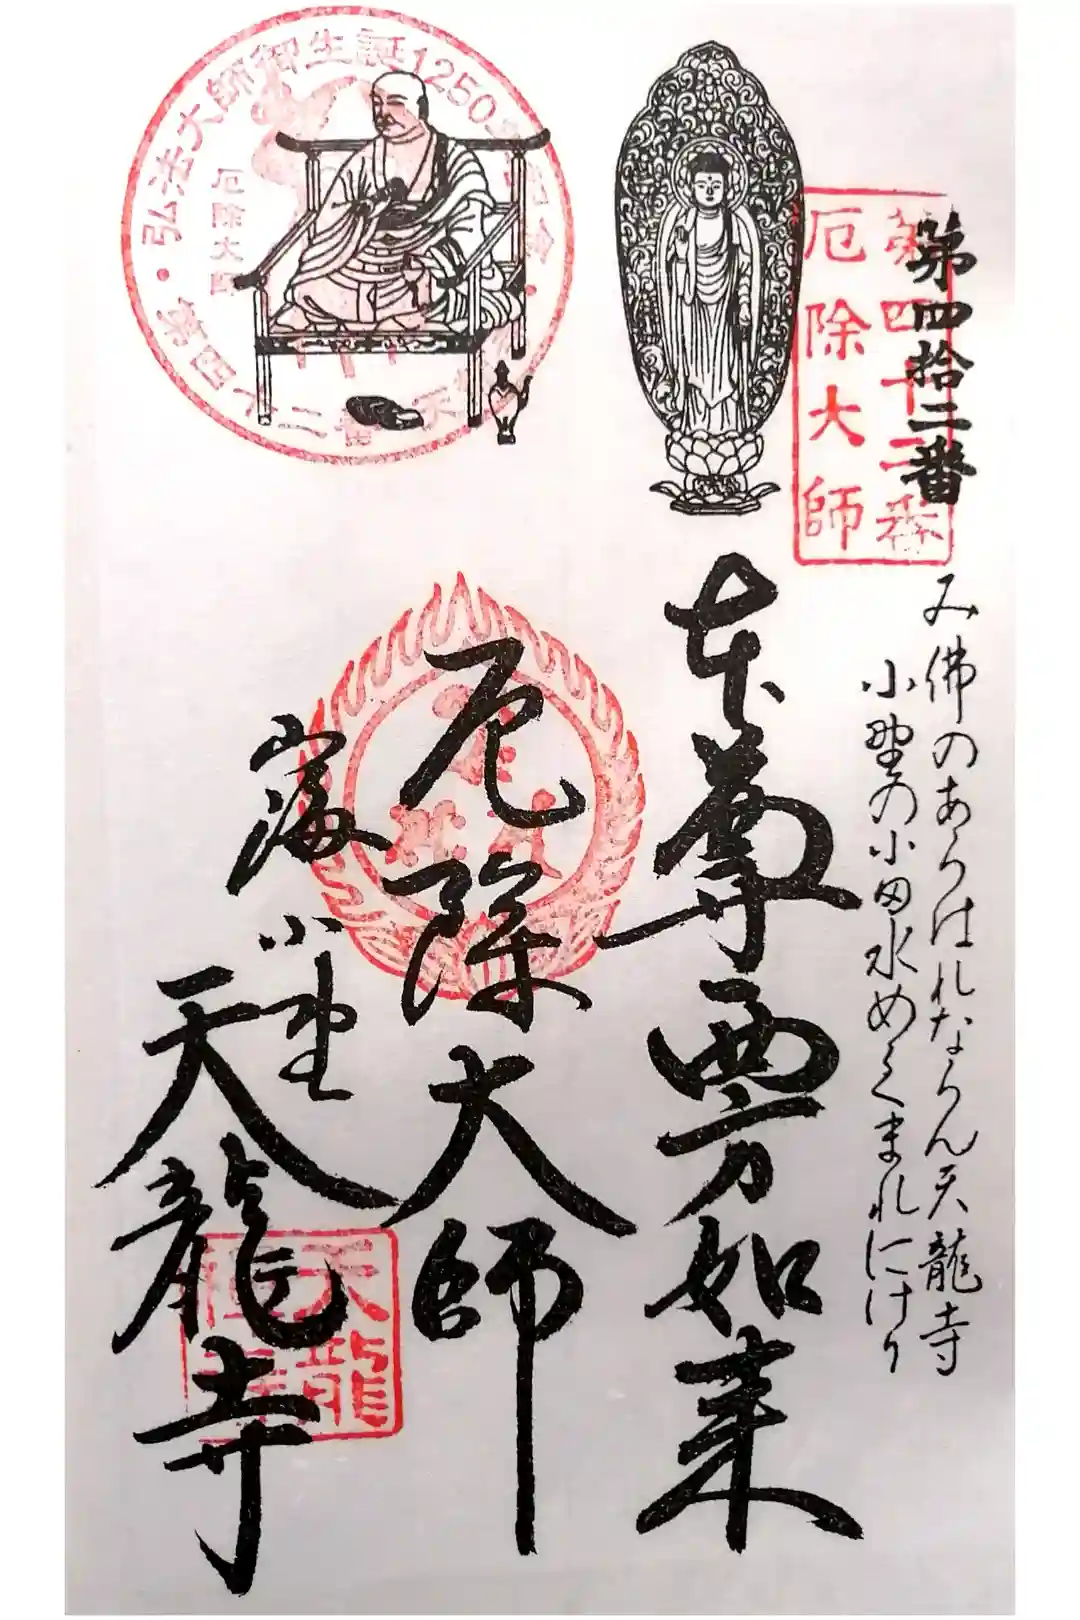 第四拾二番
第四十二番
厄除大師
み佛のあらはれならん天龍寺
小野の小田水めくまれにけり
本尊西方如来
厄除大師
小野
天龍寺
弘法大師御生誕1250年記念
厄除大師
第四十二番
天龍